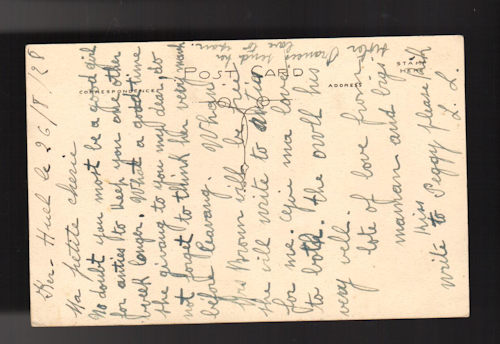 POST CARD
CORRESPONDENCE
ADDRESS
STAMP
HERE
Ker-Huel le 26/8/28
Ma petite cherie
No doubt you most be a good girl
for anties to keep you one other
week longer. What a good time
the giving to you my dear, do
not forget to think her very much
before leaving. When
Mrs Brown will be free
she will write to
for me. Give ma love
to both. the owlh his
very well.
lots of love from
maman and bigs
Kiss
write to Peggy
L. L.
sister Frances send ha
love to you.